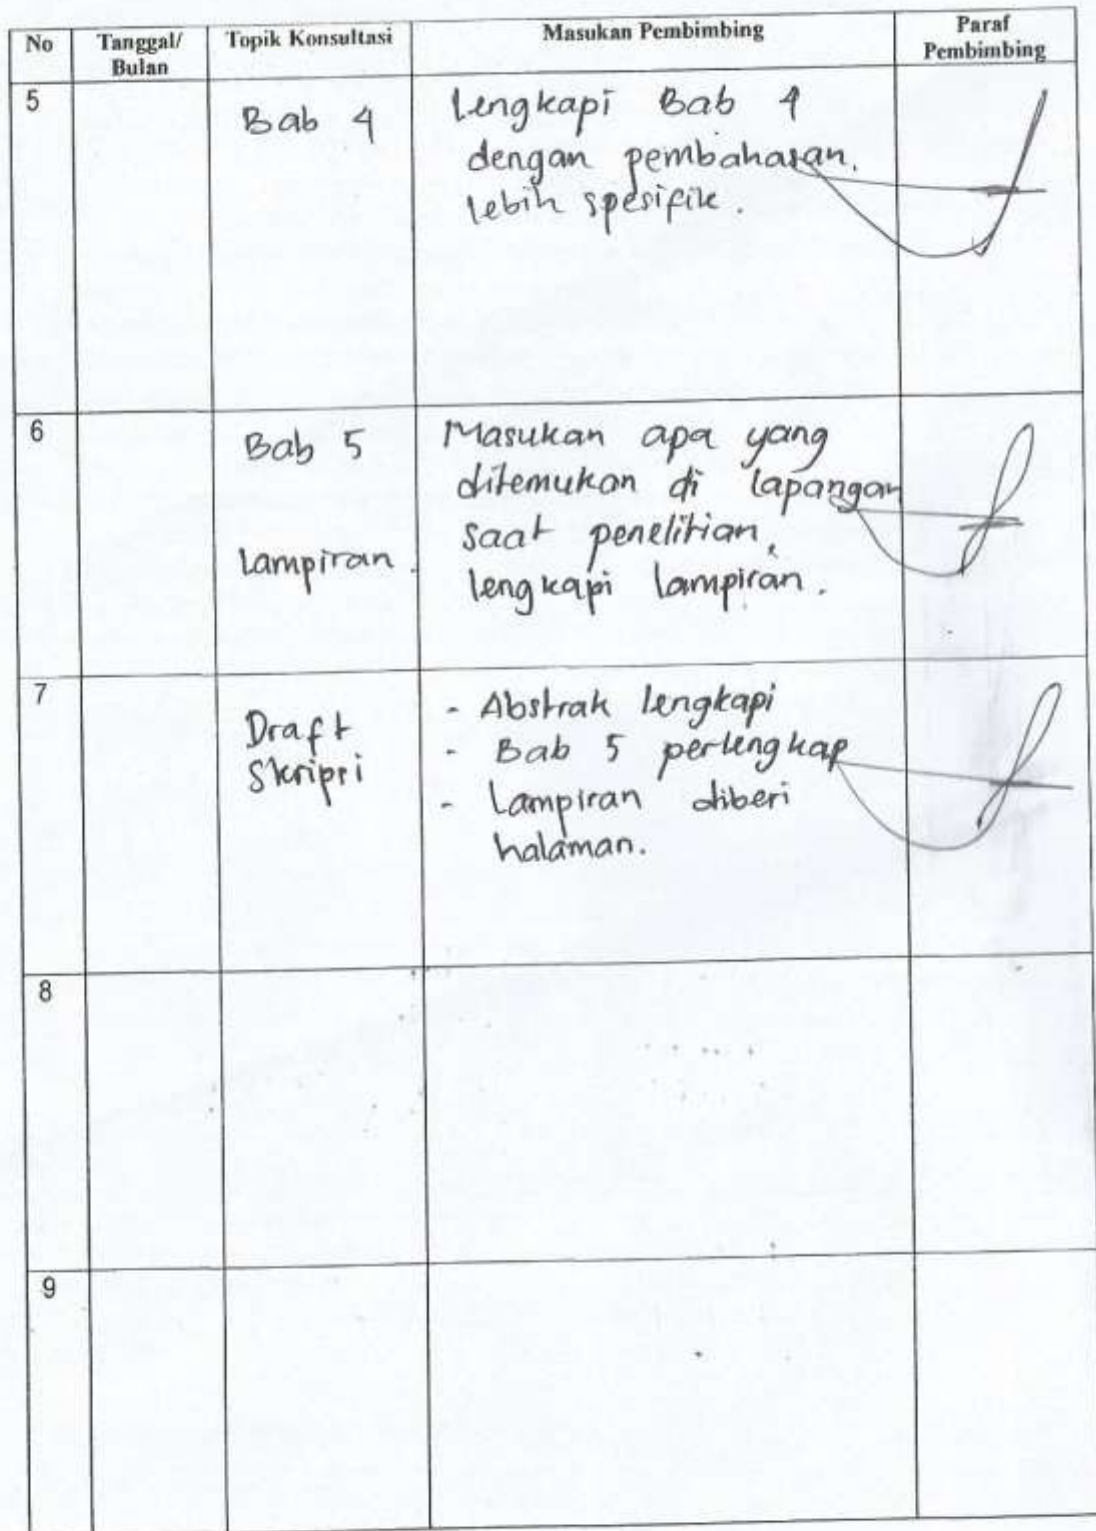 No
Tanggal/
Bulan
Topik Konsultasi
Masukan Pembimbing
Paraf
Pembimbing
5
Bab 4
Lengkapi Bab 4
dengan pembahasan.
lebih spesifik.
6
Bab 5
Lampiran.
Masukan apa yang
ditemukan di lapangan
saat penelitian,
lengkapi lampiran.
7
Draft
Skripsi
- Abstrak lengkapi
- Bab 5 perlengkap
- Lampiran diberi
halaman.
8
9